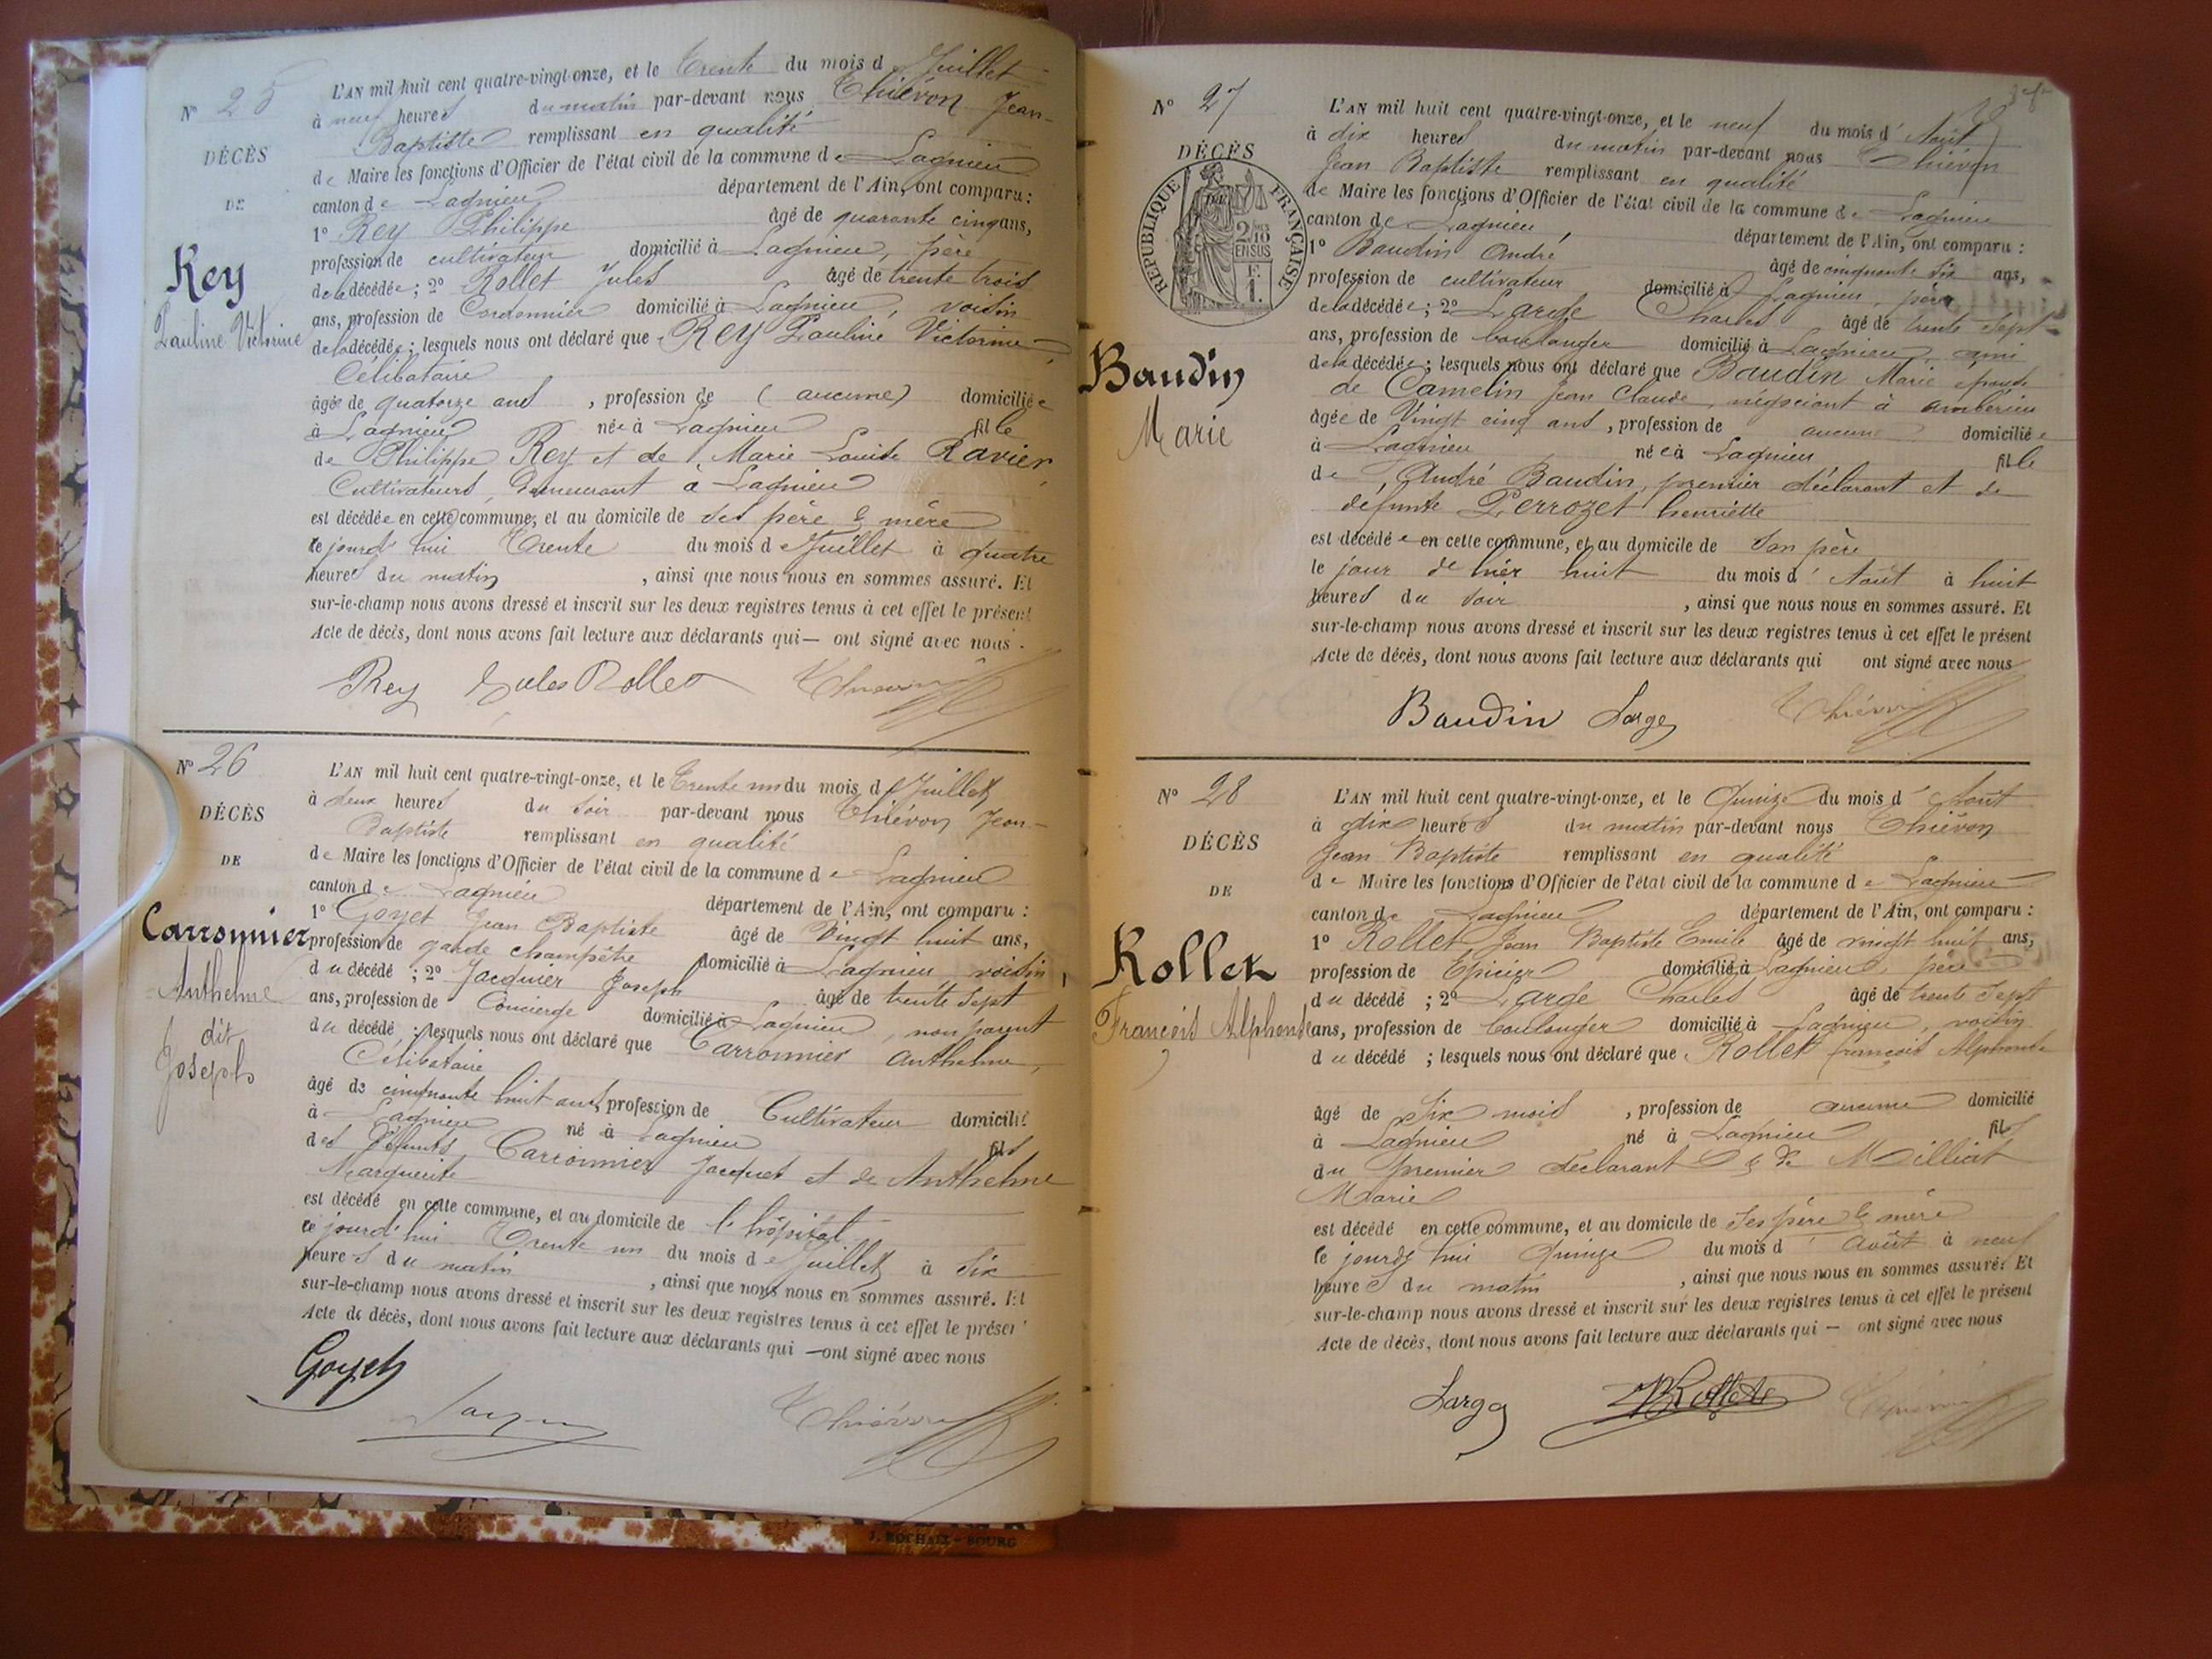 N° 25
DÉCÈS
DE
Rey
Pauline Victorine
L'AN mil huit cent quatre-vingt-onze, et le trente du mois de Juillet
à neuf heures du matin par-devant nous Thiévon Jean-
Baptiste remplissant en qualité
de Maire les fonctions d'Officier de l'état civil de la commune de Lagnieu
canton de Lagnieu département de l'Ain, ont comparu :
1° Rey Philippe âgé de quarante cinq ans,
profession de cultivateur domicilié à Lagnieu, père
de la décédée ; 2° Rollet Jules âgé de trente trois
ans, profession de Cordonnier domicilié à Lagnieu, voisin
de la décédée ; lesquels nous ont déclaré que Rey Pauline Victorine,
Célibataire
âgée de quatorze ans , profession de (aucune) domiciliée
à Lagnieu née à Lagnieu fille
de Philippe Rey et de Marie Louise Ravier,
Cultivateurs, demeurant à Lagnieu
est décédée en cette commune, et au domicile de ses père & mère
ce jourd'hui trente du mois de Juillet à quatre
heures du matin , ainsi que nous nous en sommes assuré. Et
sur-le-champ nous avons dressé et inscrit sur les deux registres tenus à cet effet le présent
Acte de décès, dont nous avons fait lecture aux déclarants qui — ont signé avec nous.
Rey Jules Rollet Thiévon
N° 26
DÉCÈS
DE
Carronnier
Anthelme
dit
Joseph
L'AN mil huit cent quatre-vingt-onze, et le trente un du mois de Juillet
à deux heures du soir par-devant nous Thiévon Jean-
Baptiste remplissant en qualité
de Maire les fonctions d'Officier de l'état civil de la commune de Lagnieu
canton de Lagnieu département de l'Ain, ont comparu :
1° Goyet Jean Baptiste âgé de vingt huit ans,
profession de garde champêtre domicilié à Lagnieu, voisin
du décédé ; 2° Jacquier Joseph âgé de trente sept
ans, profession de Concierge domicilié à Lagnieu, non parent
du décédé ; lesquels nous ont déclaré que Carronnier Anthelme,
Célibataire
âgé de cinquante huit ans, profession de Cultivateur domicilié
à Lagnieu né à Lagnieu fils
des défunts Carronnier Jacques et de Anthelme
Marguerite
est décédé en cette commune, et au domicile de l'hôpital
ce jourd'hui trente un du mois de Juillet à six
heures du matin , ainsi que nous nous en sommes assuré. Et
sur-le-champ nous avons dressé et inscrit sur les deux registres tenus à cet effet le présent
Acte de décès, dont nous avons fait lecture aux déclarants qui — ont signé avec nous
Goyet
Thiévon
J. ROCHAIX - BOURG
N° 27
DÉCÈS
DE
RÉPUBLIQUE FRANÇAISE
2/10 EN SUS
F. 1.
Baudin
Marie
L'AN mil huit cent quatre-vingt-onze, et le neuf du mois d'Août
à dix heures du matin par-devant nous Thiévon
Jean Baptiste remplissant en qualité
de Maire les fonctions d'Officier de l'état civil de la commune de Lagnieu
canton de Lagnieu, département de l'Ain, ont comparu :
1° Baudin André âgé de cinquante six ans,
profession de cultivateur domicilié à Lagnieu, père
de la décédée ; 2° Large Charles âgé de trente sept
ans, profession de boulanger domicilié à Lagnieu, ami
de la décédée ; lesquels nous ont déclaré que Baudin Marie épouse
de Camelin Jean Claude, négociant à Ambérieu
âgée de Vingt cinq ans , profession de aucune domiciliée
à Lagnieu née à Lagnieu fille
de André Baudin, premier déclarant et de
défunte Perrozet henriette
est décédée en cette commune, et au domicile de son père
le jour de hier huit du mois d'Août à huit
heures du soir , ainsi que nous nous en sommes assuré. Et
sur-le-champ nous avons dressé et inscrit sur les deux registres tenus à cet effet le présent
Acte de décès, dont nous avons fait lecture aux déclarants qui ont signé avec nous
Baudin Large Thiévon
N° 28
DÉCÈS
DE
Rollet
François Alphonse
L'AN mil huit cent quatre-vingt-onze, et le Quinze du mois d'Août
à dix heures du matin par-devant nous Thiévon
Jean Baptiste remplissant en qualité
de Maire les fonctions d'Officier de l'état civil de la commune de Lagnieu
canton de Lagnieu département de l'Ain, ont comparu :
1° Rollet Jean Baptiste Emile âgé de vingt huit ans,
profession de Epicier domicilié à Lagnieu, père
du décédé ; 2° Large Charles âgé de trente sept
ans, profession de boulanger domicilié à Lagnieu, voisin
du décédé ; lesquels nous ont déclaré que Rollet françois Alphonse
âgé de six mois , profession de aucune domicilié
à Lagnieu né à Lagnieu fils
du premier déclarant & de Milliat
Marie
est décédé en cette commune, et au domicile de ses père & mère
ce jourd'hui Quinze du mois d'août à neuf
heures du matin , ainsi que nous nous en sommes assuré. Et
sur-le-champ nous avons dressé et inscrit sur les deux registres tenus à cet effet le présent
Acte de décès, dont nous avons fait lecture aux déclarants qui — ont signé avec nous
Large Rollet Thiévon